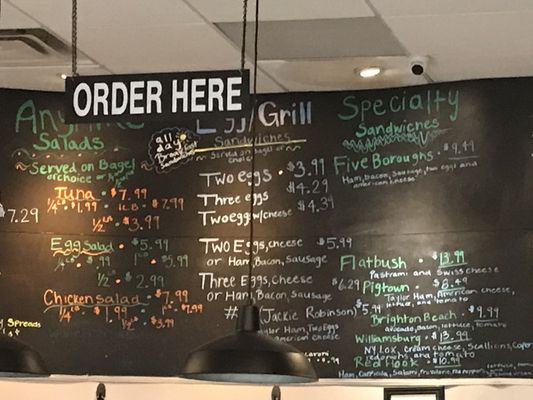 ORDER HERE
Salads
Served on Bagel
of choice
Tuna $7.99
1/4 Lb. $1.99 1Lb $7.99
1/2 $3.99
7.29
Egg Salad $5.99
1/4 Lb. 1Lb $5.99
1/2 $2.99
Chicken Salad $7.99
1/4 Lb $1.99 1Lb $7.99
1/2 $3.99
Spreads
all
day
Breakfast
Sandwiches
Egg/Grill
Sandwiches
Served on Bagel of
choice
Two eggs $3.99
Three eggs $4.29
Two eggs w/cheese $4.39
Two Eggs, cheese $5.99
or Ham, Bacon, Sausage
Three Eggs, Cheese $6.29
or Ham, Bacon, Sausage
(Jackie Robinson) $5.99
Taylor Ham, Two Eggs
american Cheese
Specialty
Sandwiches
Five Boroughs $9.49
Ham, Bacon, Sausage, two eggs and
american cheese
Flatbush $13.99
Pastrami and Swiss cheese
Pigtown
Taylor Ham, American cheese,
lettuce, and tomato
Brighton Beach $9.99
avocado, Bacon, lettuce, tomato
Williamsburg $13.99
NY Lox, cream cheese, Scallions,
red onions and tomato
Red Hook $10.99
Ham, Salami,